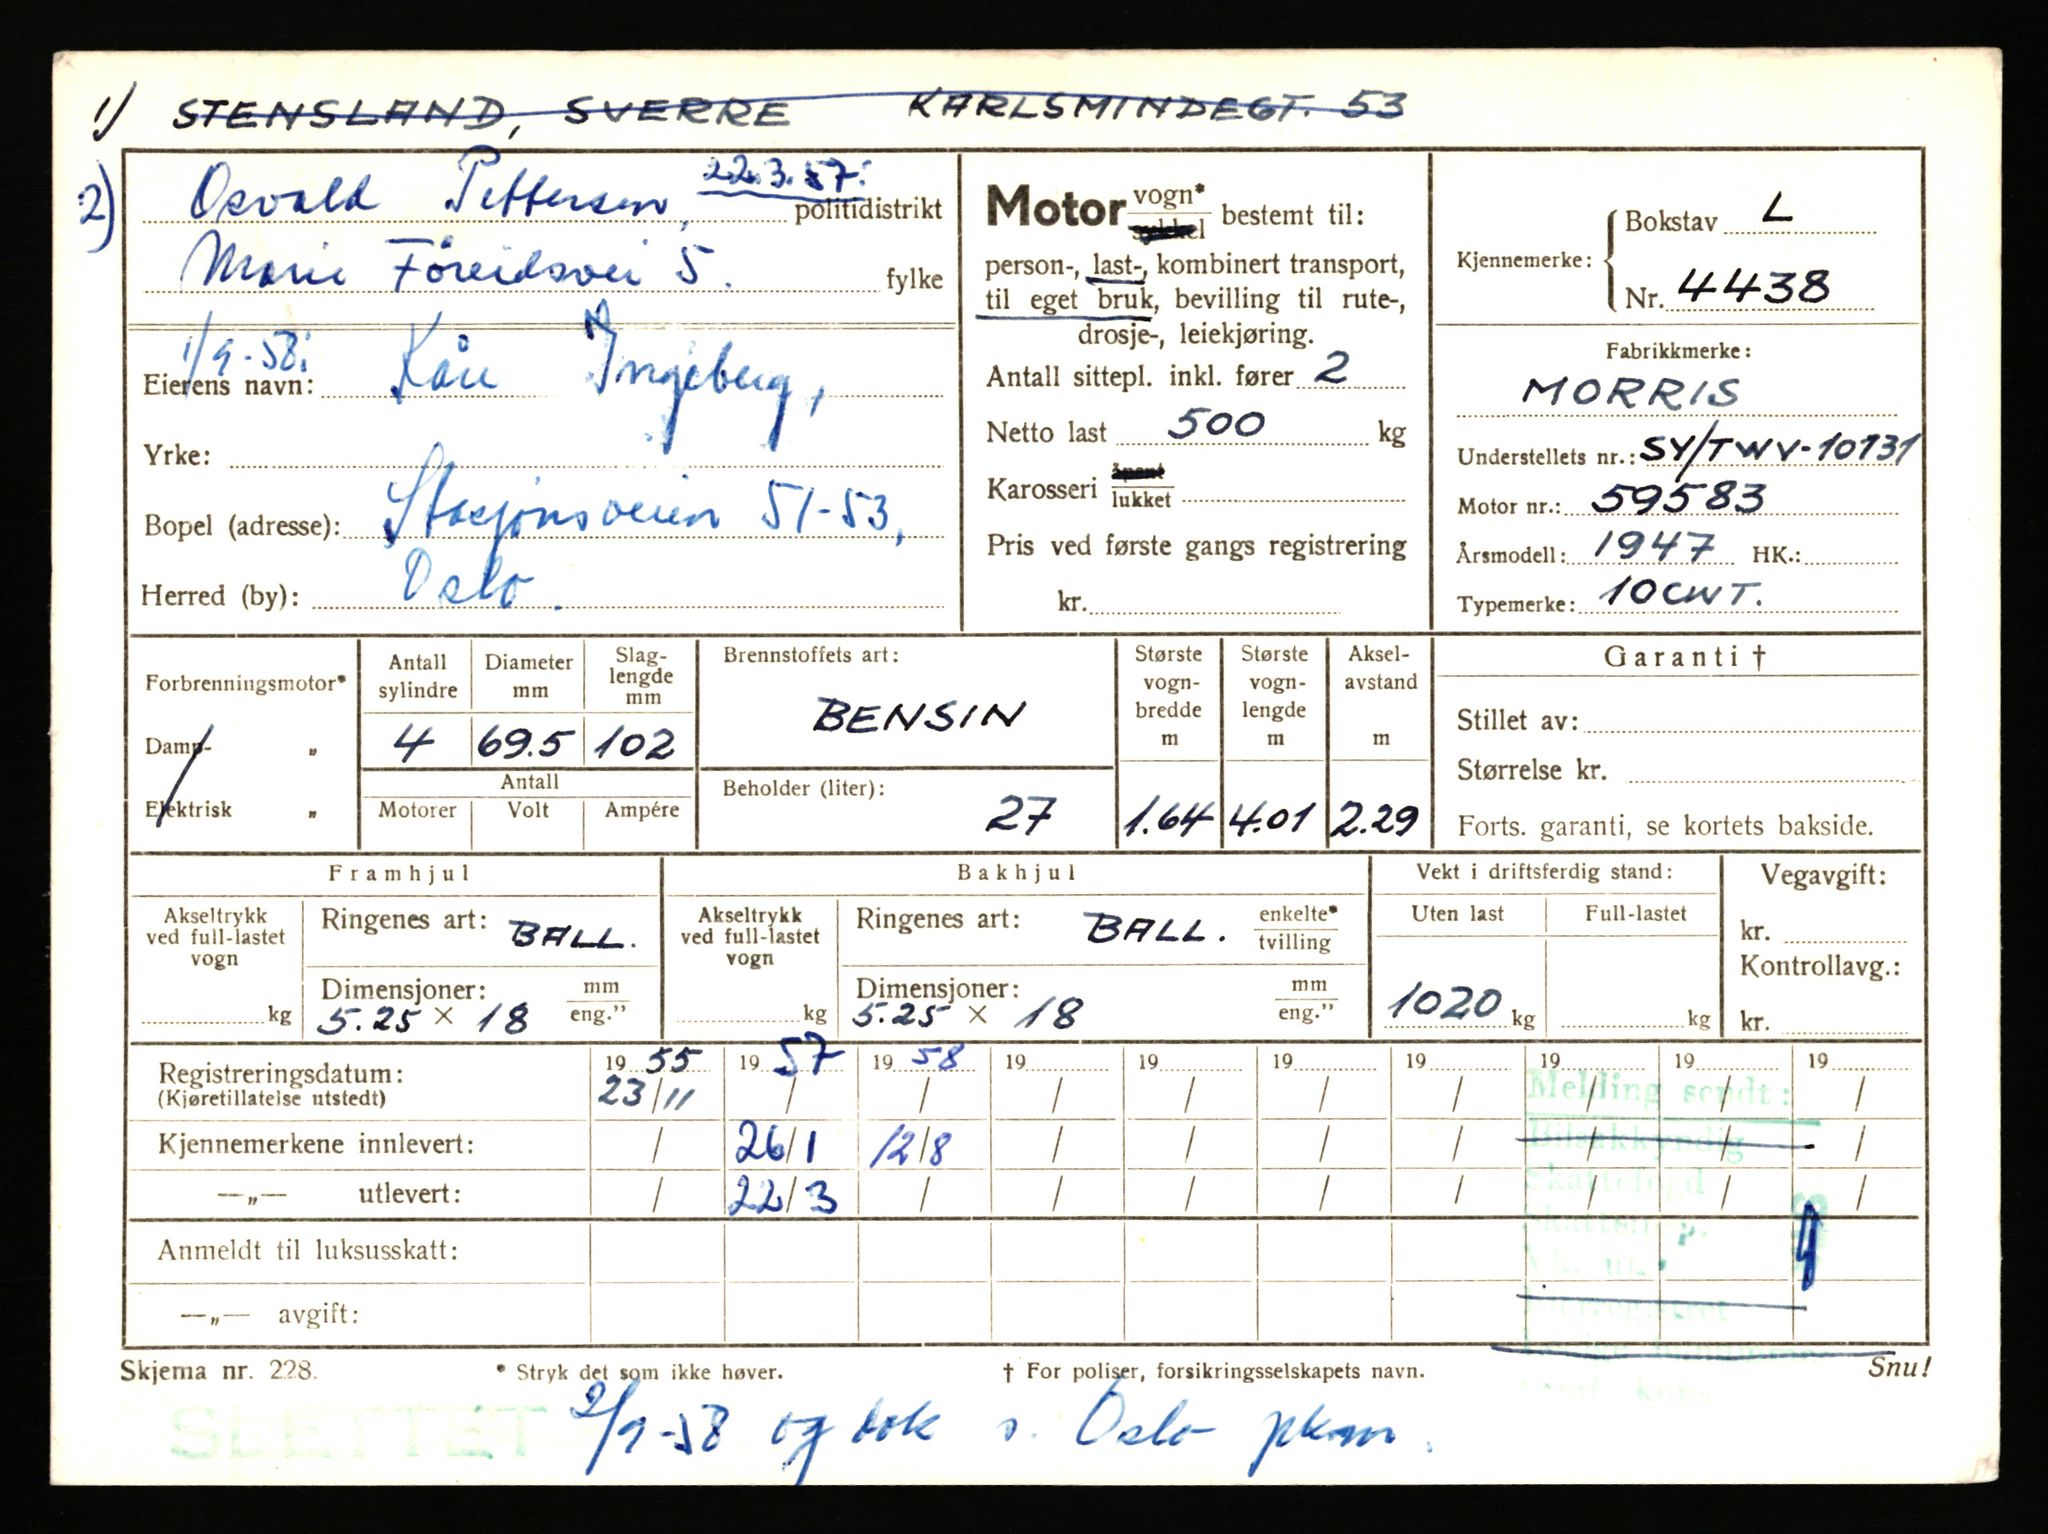 1) STENSLAND, SVERRE KARLSMINDEGT. 53
2) Osvald Pettersen, 22.3.57: politidistrikt
Marie Föreidsvei 5. fylke
1/9-58:
Eierens navn: Kåre Ingeberg,
Yrke:
Bopel (adresse): Stasjonsveien 51-53,
Herred (by): Oslo.
Motor vogn* bestemt til:
person-, last-, kombinert transport,
til eget bruk, bevilling til rute-,
drosje-, leiekjøring.
Antall sittepl. inkl. fører 2
Netto last 500 kg
Karosseri åpent lukket
Pris ved første gangs registrering
kr.
Kjennemerke: Bokstav L
Nr. 4438
Fabrikkmerke:
MORRIS
Understellets nr.: SY/TWV-10731
Motor nr.: 59583
Årsmodell: 1947 HK.:
Typemerke: 10CWT.
Forbrenningsmotor*
Damp- „
Elektrisk „
Antall sylindre Diameter mm Slag-lengde mm
4 69.5 102
Antall
Motorer Volt Ampére
Brennstoffets art:
BENSIN
Beholder (liter):
27
Største vogn-bredde m
1.64
Største vogn-lengde m
4.01
Aksel-avstand m
2.29
Garanti †
Stillet av:
Størrelse kr.
Forts. garanti, se kortets bakside.
Framhjul
Akseltrykk ved full-lastet vogn
kg
Ringenes art: BALL.
Dimensjoner: mm eng.”
5.25 × 18
Bakhjul
Akseltrykk ved full-lastet vogn
kg
Ringenes art: BALL. enkelte* tvilling
Dimensjoner: mm eng.”
5.25 × 18
Vekt i driftsferdig stand:
Uten last Full-lastet
1020 kg kg
Vegavgift:
kr.
Kontrollavg.:
kr.
Registreringsdatum: 19 55 19 57 19 58 19 19 19 19 19 19 19
(Kjøretillatelse utstedt) 23/11 / / / / / / / / /
Kjennemerkene innlevert: / 26/1 12/8 / / / / / / /
—„— utlevert: / 22/3 / / / / / / / /
Anmeldt til luksusskatt:
—„— avgift:
Melding sendt:
Bilsakkyndig
Skattefogd
Skjema nr. 228. * Stryk det som ikke høver. † For poliser, forsikringsselskapets navn. Snu!
SLETTET 2/9-58 og bok s. Oslo pkm.